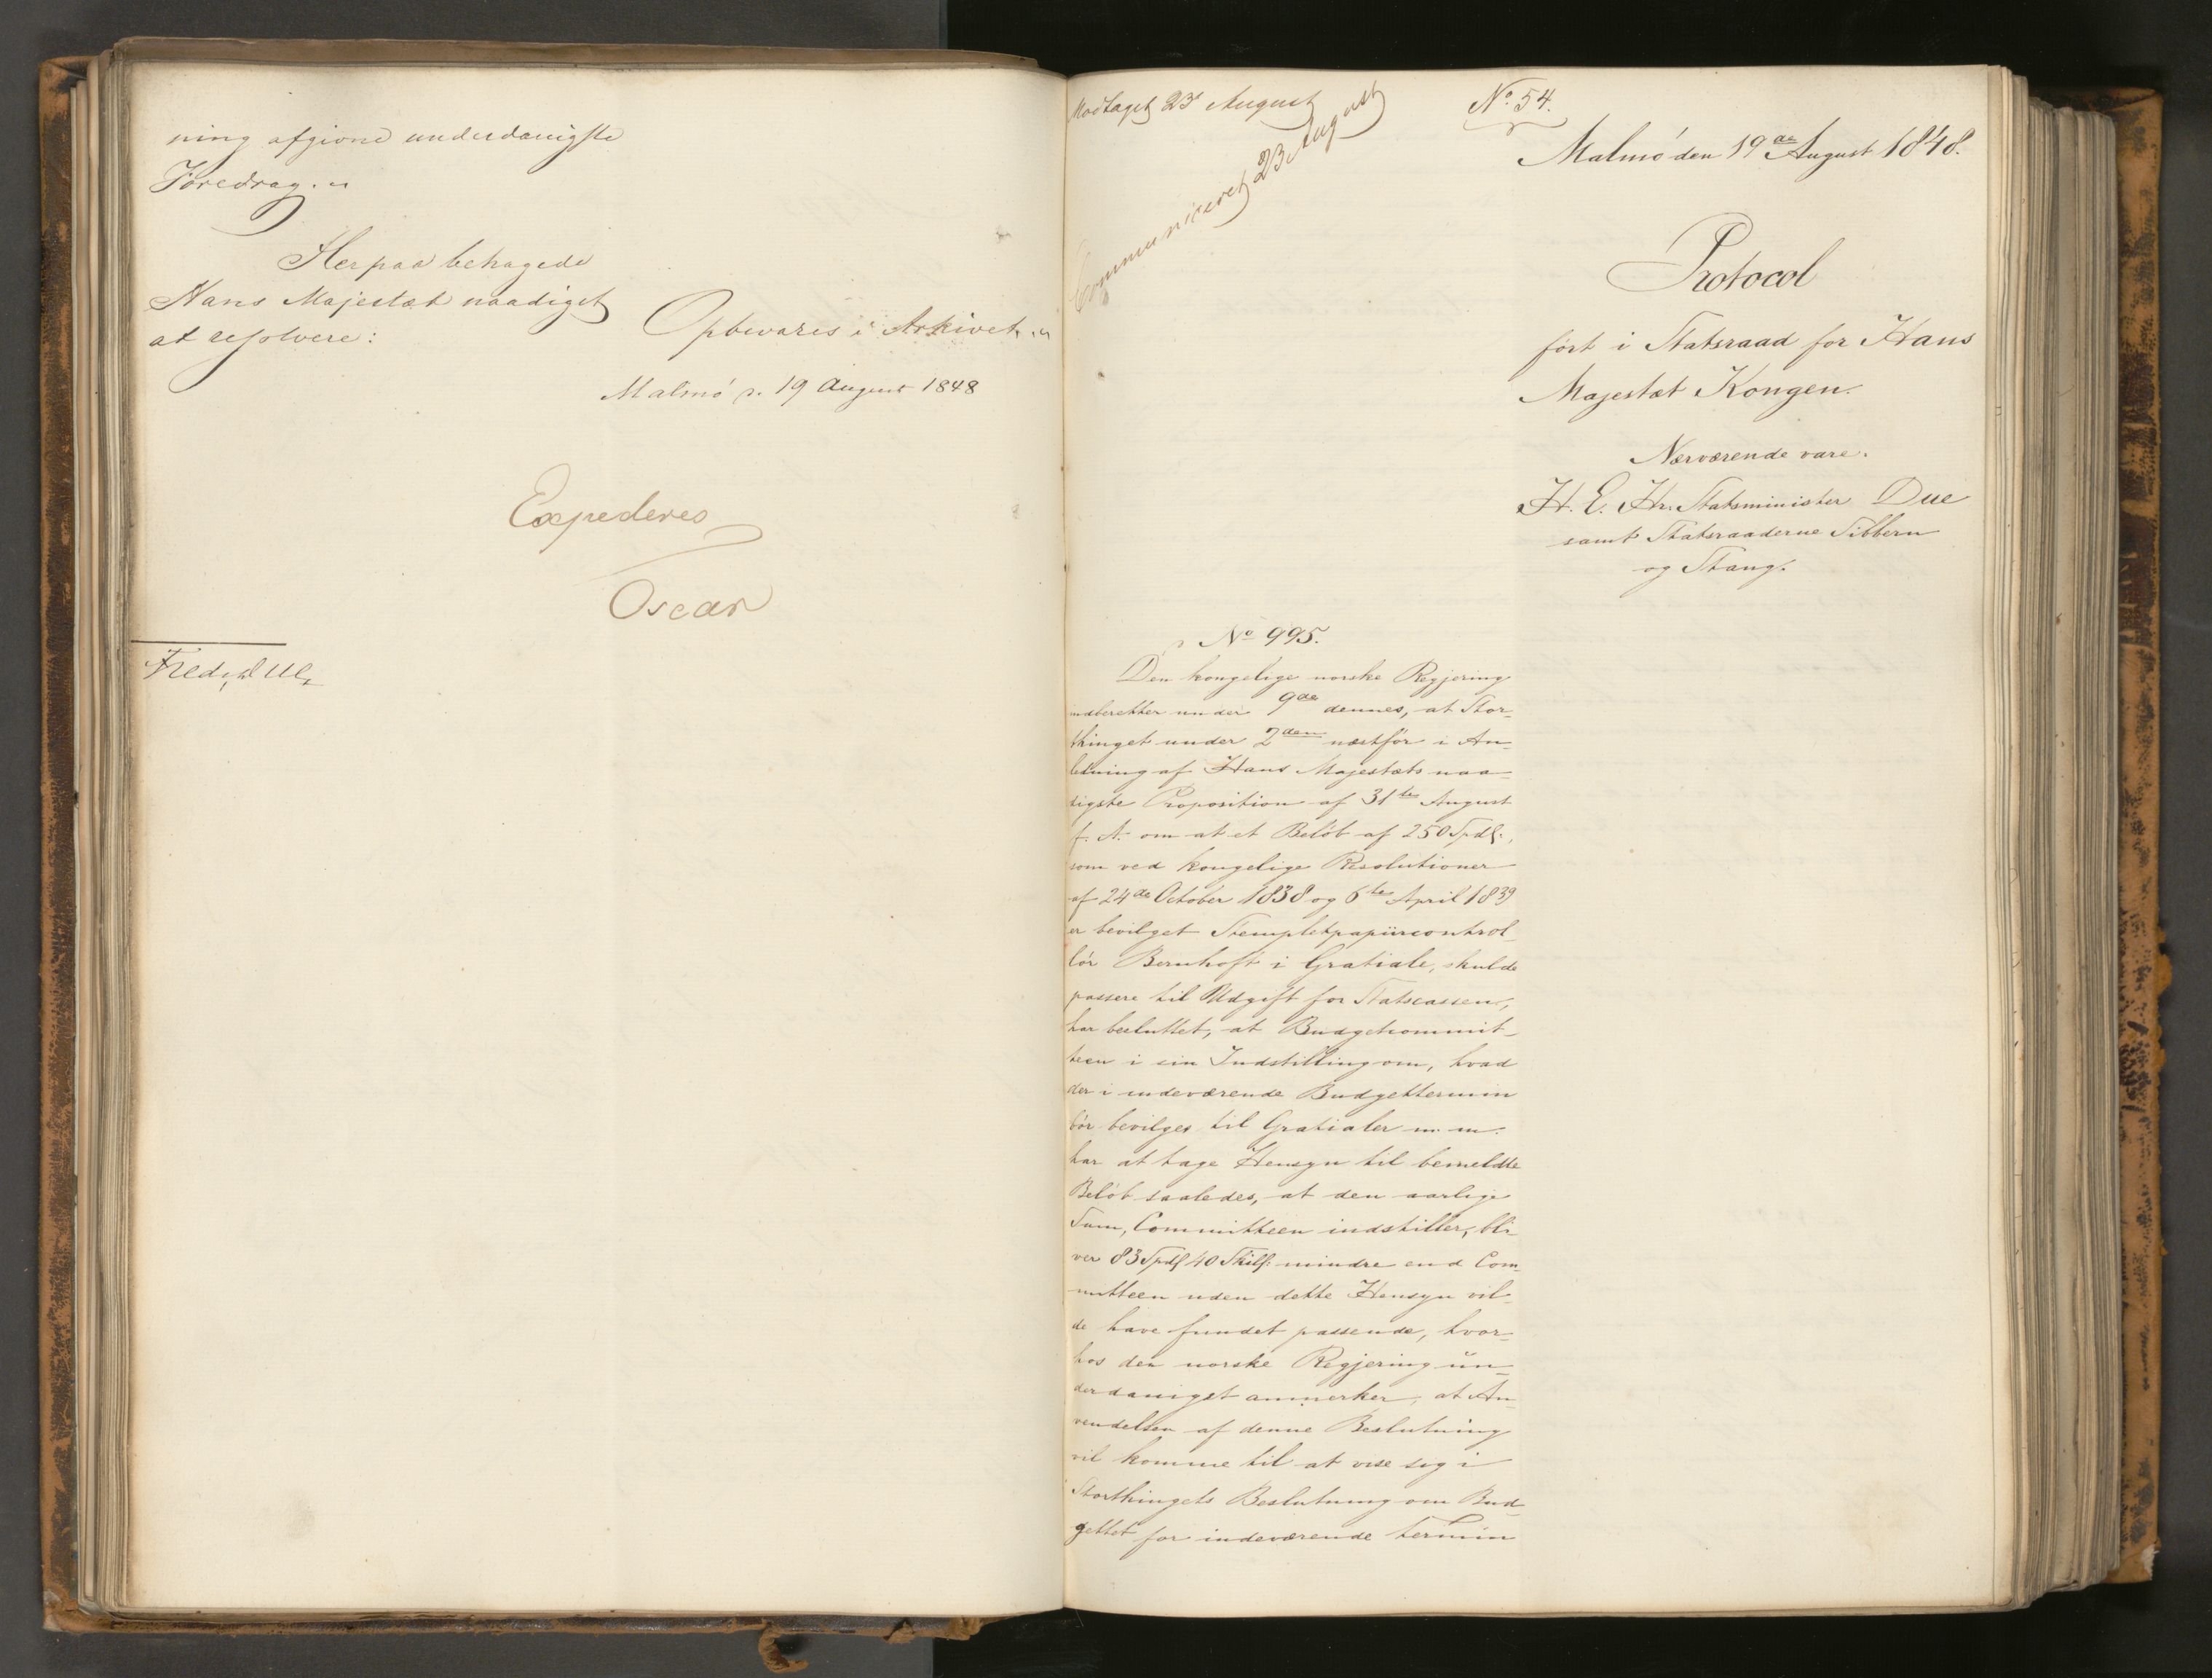 ning afgivne underdanigste
Foredrag. "
Herpaa behagede
Hans Majestæt naadigst
at resolvere:
Opbevares i Arkivet. "
Malmö d. 19 August 1848
Expederes
Oscar
Fred. Due
Modtaget 23 August
Communiceret 23 August
No. 54.
Malmö den 19de August 1848.
Protocol
fört i Statsraad for Hans
Majestæt Kongen.
Nærværende vare.
H. E. Hr. Statsminister Due
samt Statsraaderne Sibbern
og Stang.
No 995.
Den kongelige norske Regjering
indberetter under 9de dennes, at Stor-
thinget under 2den næstför i An-
ledning af Hans Majestæts naa-
digste Proposition af 31te August
f. A. om at et Belöb af 250 Spdl.,
som ved kongelige Resolutioner
af 24de October 1838 og 6te April 1839
er bevilget Stempletpapiircontrol-
lör Bernhoft i Gratiale, skulde
passere til Udgift for Statscassen,
har besluttet, at Budgetcommit-
teen i sin Indstilling om, hvad
der i indeværende Budgettermin
bör bevilges til Gratialer m. m.
har at tage Hensyn til bemeldte
Belöb saaledes, at den aarlige
Sum, Committeen indstiller, bli-
ver 83 Spdl 40 Skill. mindre end Com-
mitteen uden dette Hensyn vil-
de have fundet passende, hvor-
hos den norske Regjering un-
derdanigst anmerker, at An-
vendelsen af denne Beslutning
vil komme til at vise sig i
Storthingets Beslutning om Bud-
gettet for indeværende Termin